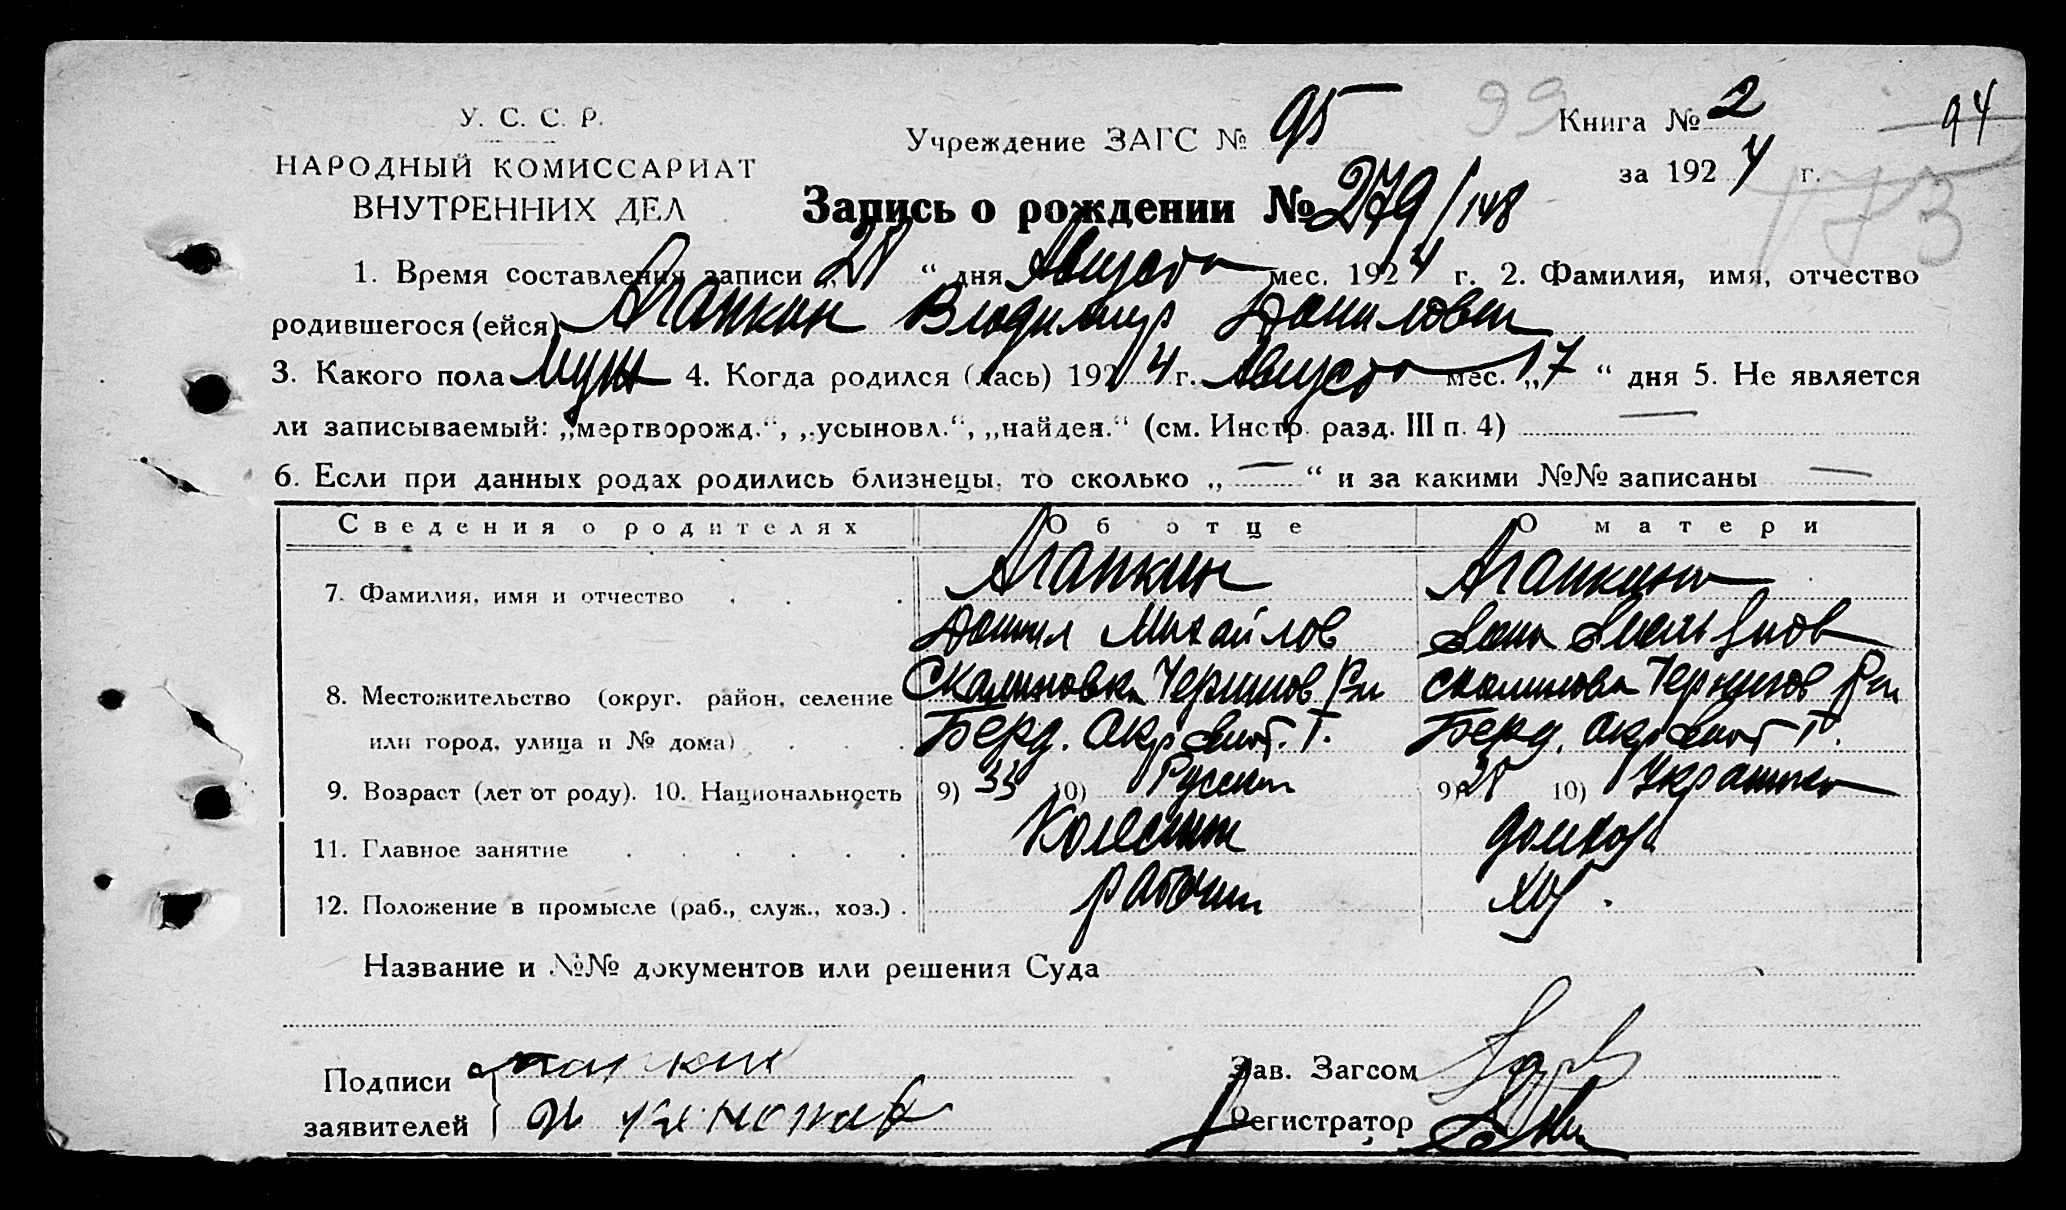 У. С. С. Р.
НАРОДНЫЙ КОМИССАРИАТ
ВНУТРЕННИХ ДЕЛ
Учреждение ЗАГС № 95
99
Книга № 2
94
за 1924 г.
173
Запись о рождении № 279/148
1. Время составления записи „21“ дня Августа мес. 1924 г. 2. Фамилия, имя, отчество
родившегося (ейся) Агапкин Владимир Данилович
3. Какого пола Муж 4. Когда родился (лась) 1924 г. Августа мес. „17“ дня 5. Не является
ли записываемый: „мертворожд.“, „усыновл.“, „найден.“ (см. Инстр. разд. III п. 4) —
6. Если при данных родах родились близнецы, то сколько „—“ и за какими №№ записаны —
Сведения о родителях Об отце О матери
7. Фамилия, имя и отчество Агапкин Агапкина
Данил Михайлов
8. Местожительство (округ. район, селение Скалиновка Чернигов Рн Скалиновка Чернигов Рн
или город, улица и № дома) Берд. Окр Берд. Окр
9. Возраст (лет от роду). 10. Национальность 9) 33 10) Русский 9) 28 10) Украинка
11. Главное занятие домхоз
12. Положение в промысле (раб., служ., хоз.) рабочий хоз.
Название и №№ документов или решения Суда
Подписи Агапкин
заявителей
Зав. Загсом
Регистратор